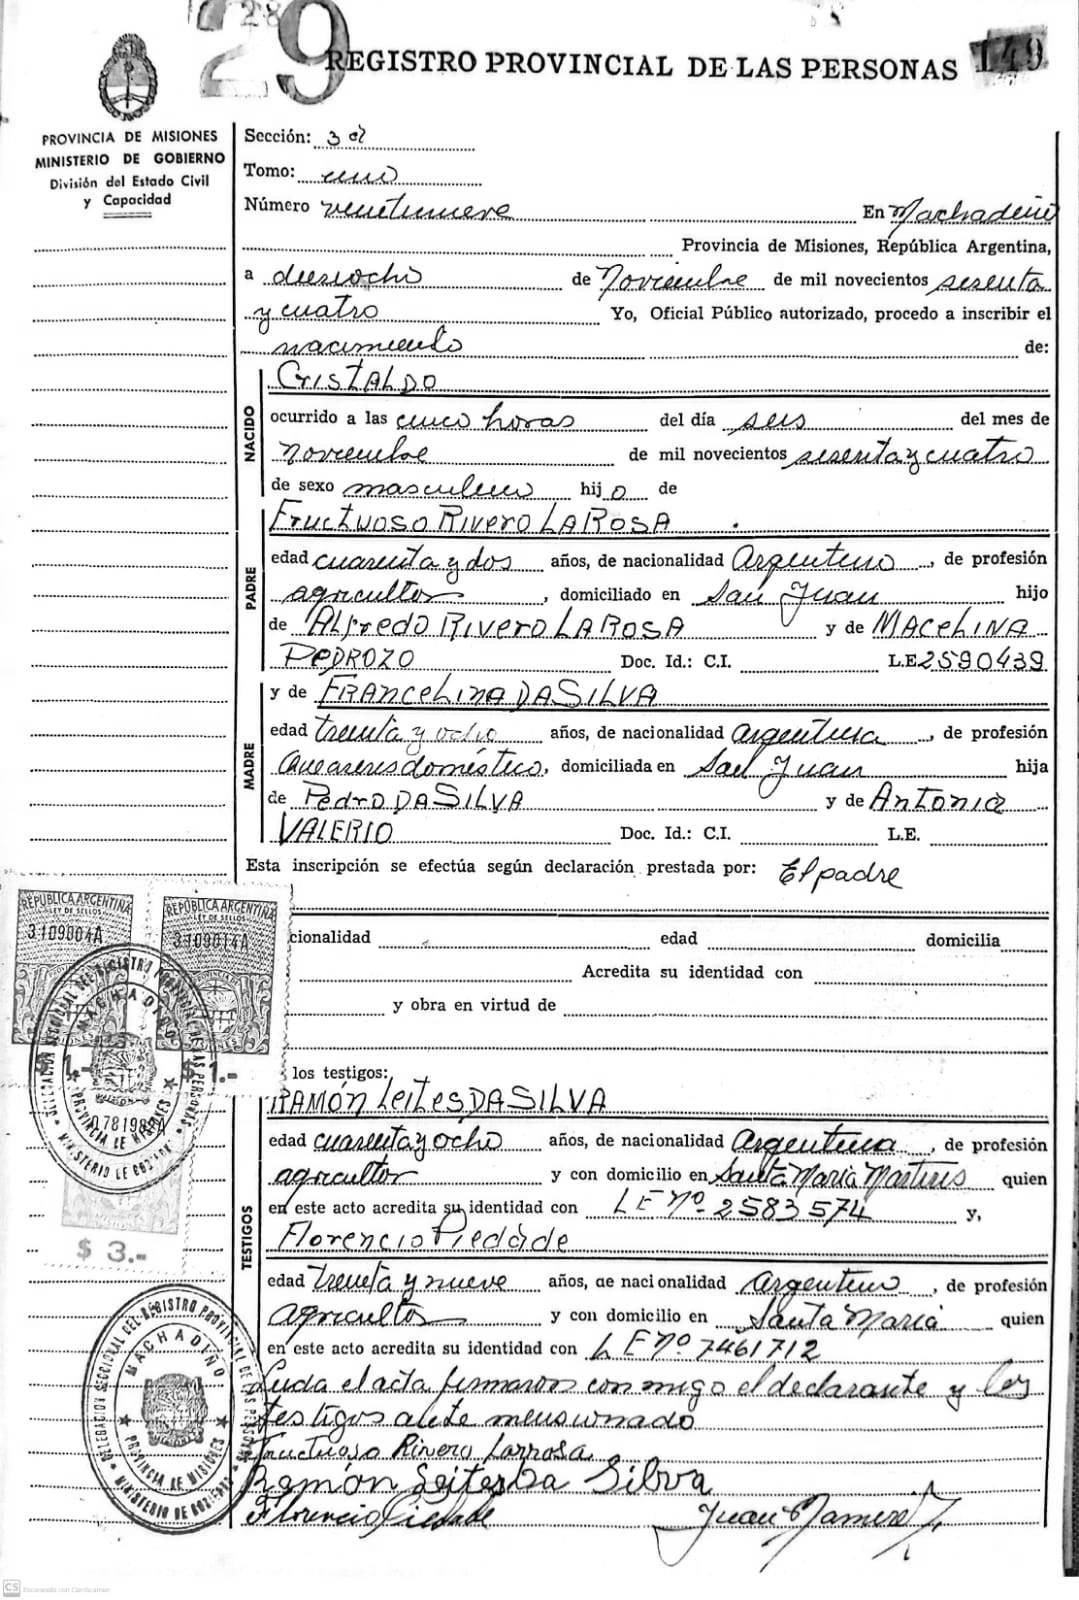 29
28
REGISTRO PROVINCIAL DE LAS PERSONAS
149
PROVINCIA DE MISIONES
MINISTERIO DE GOBIERNO
División del Estado Civil
y Capacidad
Sección: 3ª
Tomo: uno
Número veintinueve En Machadiño
Provincia de Misiones, República Argentina,
a dieciocho de Noviembre de mil novecientos sesenta
y cuatro Yo, Oficial Público autorizado, procedo a inscribir el
nacimiento de:
NACIDO
CrisTALDO
ocurrido a las cinco horas del día seis del mes de
noviembre de mil novecientos sesenta y cuatro
de sexo masculino hijo de
PADRE
Fructuoso Rivero LaRosa
edad cuarenta y dos años, de nacionalidad Argentino, de profesión
agricultor, domiciliado en San Juan hijo
de Alfredo Rivero LaRosa y de MACELINA
PEDROZO Doc. Id.: C.I. L.E 2590439
MADRE
y de FRANCELINA DA SILVA
edad treinta y ocho años, de nacionalidad argentina, de profesión
Queaseres doméstico, domiciliada en San Juan hija
de Pedro DA SILVA y de Antonia
VALERIO Doc. Id.: C.I. L.E.
Esta inscripción se efectúa según declaración prestada por: El padre
cionalidad edad domicilia
Acredita su identidad con
y obra en virtud de
los testigos:
TESTIGOS
RAMÓN Leites DA SILVA
edad cuarenta y ocho años, de nacionalidad Argentina, de profesión
agricultor y con domicilio en Santa Maria Martires quien
en este acto acredita su identidad con LE nº 2583574 y,
Florencio Piedade
edad treinta y nueve años, de nacionalidad argentino, de profesión
agricultor y con domicilio en Santa Maria quien
en este acto acredita su identidad con L E nº 7461712
Luda el acta firmaron con migo el declarante y los
testigos alete mensionado
Fructuoso Rivero Larrosa
Ramón Leites Da Silva
Florencio Piedade
REPUBLICA ARGENTINA
LEY DE SELLOS
3109004A
REPUBLICA ARGENTINA
LEY DE SELLOS
3109014A
1.-
1.-
DELEGACION SECCIONAL DEL REGISTRO PROVINCIAL DE LAS PERSONAS
MACHADIÑO
PROVINCIA DE MISIONES
MINISTERIO DE GOBIERNO
$ 3.-
DELEGACION SECCIONAL DEL REGISTRO PROVINCIAL DE LAS PERSONAS
MACHADIÑO
PROVINCIA DE MISIONES
MINISTERIO DE GOBIERNO
CS Escaneado con CamScanner